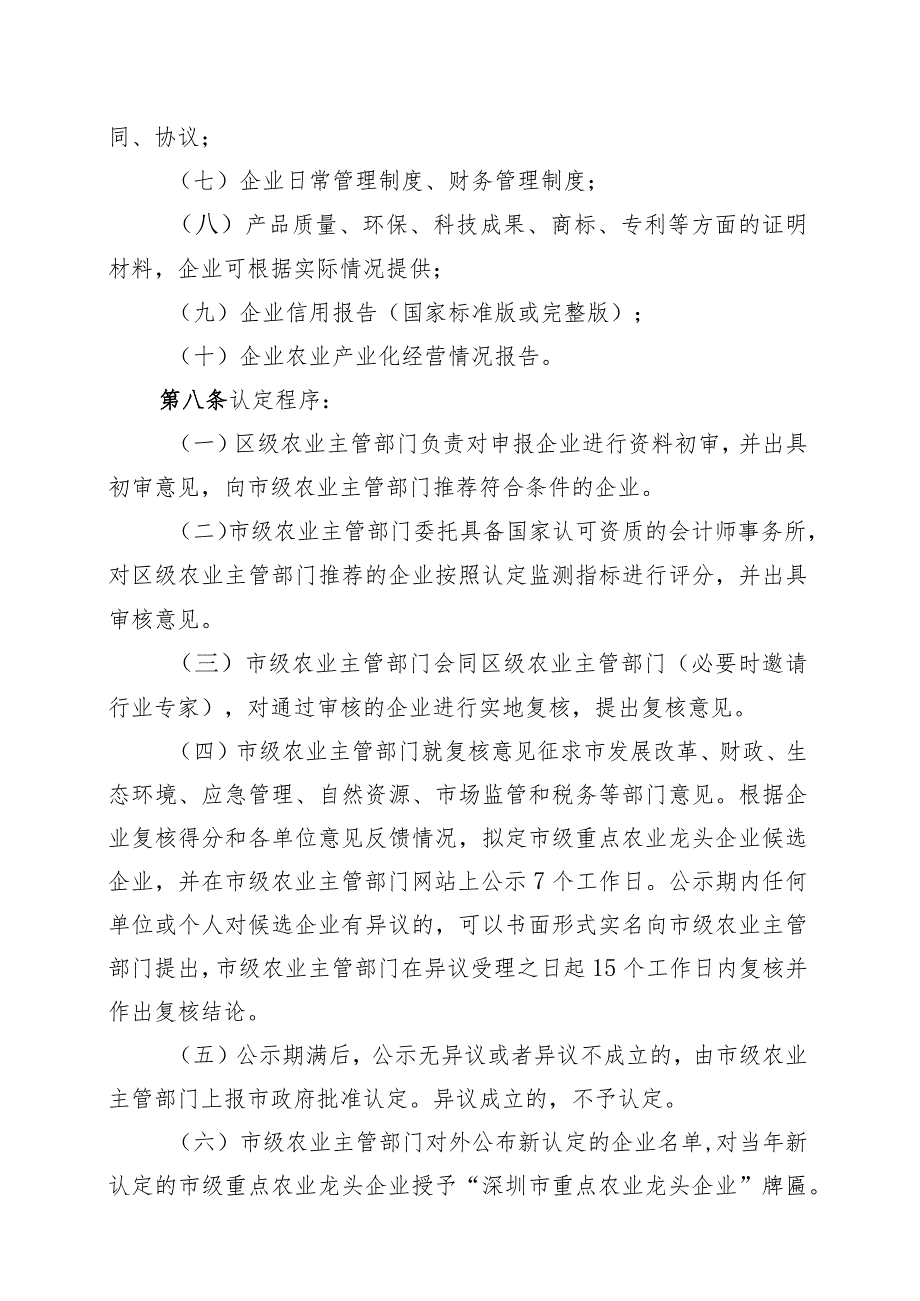 同、协议；
（七）企业日常管理制度、财务管理制度；
（八）产品质量、环保、科技成果、商标、专利等方面的证明
材料，企业可根据实际情况提供；
（九）企业信用报告（国家标准版或完整版）；
（十）企业农业产业化经营情况报告。
第八条认定程序：
（一）区级农业主管部门负责对申报企业进行资料初审，并出具
初审意见，向市级农业主管部门推荐符合条件的企业。
（二）市级农业主管部门委托具备国家认可资质的会计师事务所，
对区级农业主管部门推荐的企业按照认定监测指标进行评分，并出具
审核意见。
（三）市级农业主管部门会同区级农业主管部门（必要时邀请
行业专家），对通过审核的企业进行实地复核，提出复核意见。
（四）市级农业主管部门就复核意见征求市发展改革、财政、生
态环境、应急管理、自然资源、市场监管和税务等部门意见。根据企
业复核得分和各单位意见反馈情况，拟定市级重点农业龙头企业候选
企业，并在市级农业主管部门网站上公示 7 个工作日。公示期内任何
单位或个人对候选企业有异议的，可以书面形式实名向市级农业主管
部门提出，市级农业主管部门在异议受理之日起 15 个工作日内复核并
作出复核结论。
（五）公示期满后，公示无异议或者异议不成立的，由市级农业
主管部门上报市政府批准认定。异议成立的，不予认定。
（六）市级农业主管部门对外公布新认定的企业名单,对当年新
认定的市级重点农业龙头企业授予“深圳市重点农业龙头企业”牌匾。